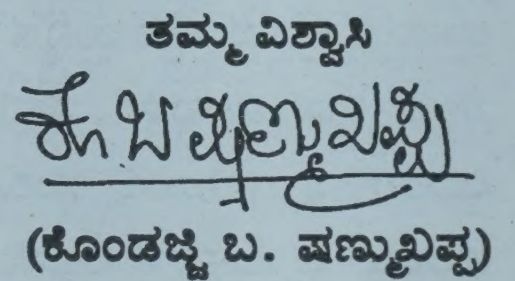 ತಮ್ಮ ವಿಶ್ವಾಸಿ
ಕೆ ಬ ಷಣ್ಮುಖಪ್ಪ
(ಕೊಂಡಜ್ಜಿ ಬ. ಷಣ್ಮುಖಪ್ಪ)